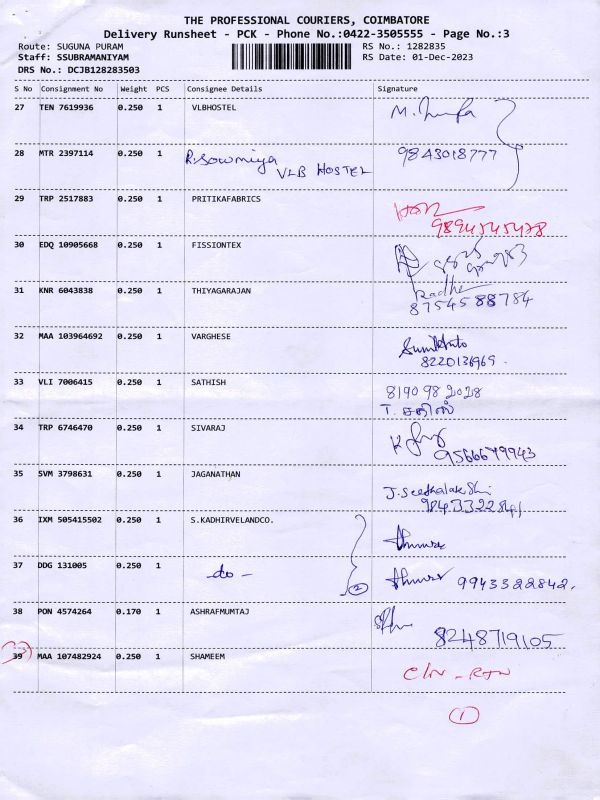 THE PROFESSIONAL COURIERS, COIMBATORE
Delivery Runsheet - PCK - Phone No.:0422-3505555 - Page No.:3
Route: SUGUNA PURAM RS No.: 1282835
Staff: SSUBRAMANIYAM RS Date: 01-Dec-2023
DRS No.: DCJB128283503
S No Consignment No Weight PCS Consignee Details Signature
27 TEN 7619936 0.250 1 VLBHOSTEL
28 MTR 2397114 0.250 1 R.Sowmiya VLB HOSTEL 9843018777
29 TRP 2517883 0.250 1 PRITIKAFABRICS
9894545478
30 EDQ 10905668 0.250 1 FISSIONTEX
31 KNR 6043838 0.250 1 THIYAGARAJAN Radha
8754588784
32 MAA 103964692 0.250 1 VARGHESE
8220136969.
33 VLI 7006415 0.250 1 SATHISH 8190982028
T. சதீஸ்
34 TRP 6746470 0.250 1 SIVARAJ
9566679943
35 SVM 3798631 0.250 1 JAGANATHAN J.Seethalakshmi
36 IXM 505415502 0.250 1 S.KADHIRVELANDCO.
37 DDG 131005 0.250 1 -do- 2 9943322842.
38 PON 4574264 0.170 1 ASHRAFMUMTAJ
8248719105
39 MAA 107482924 0.250 1 SHAMEEM
1